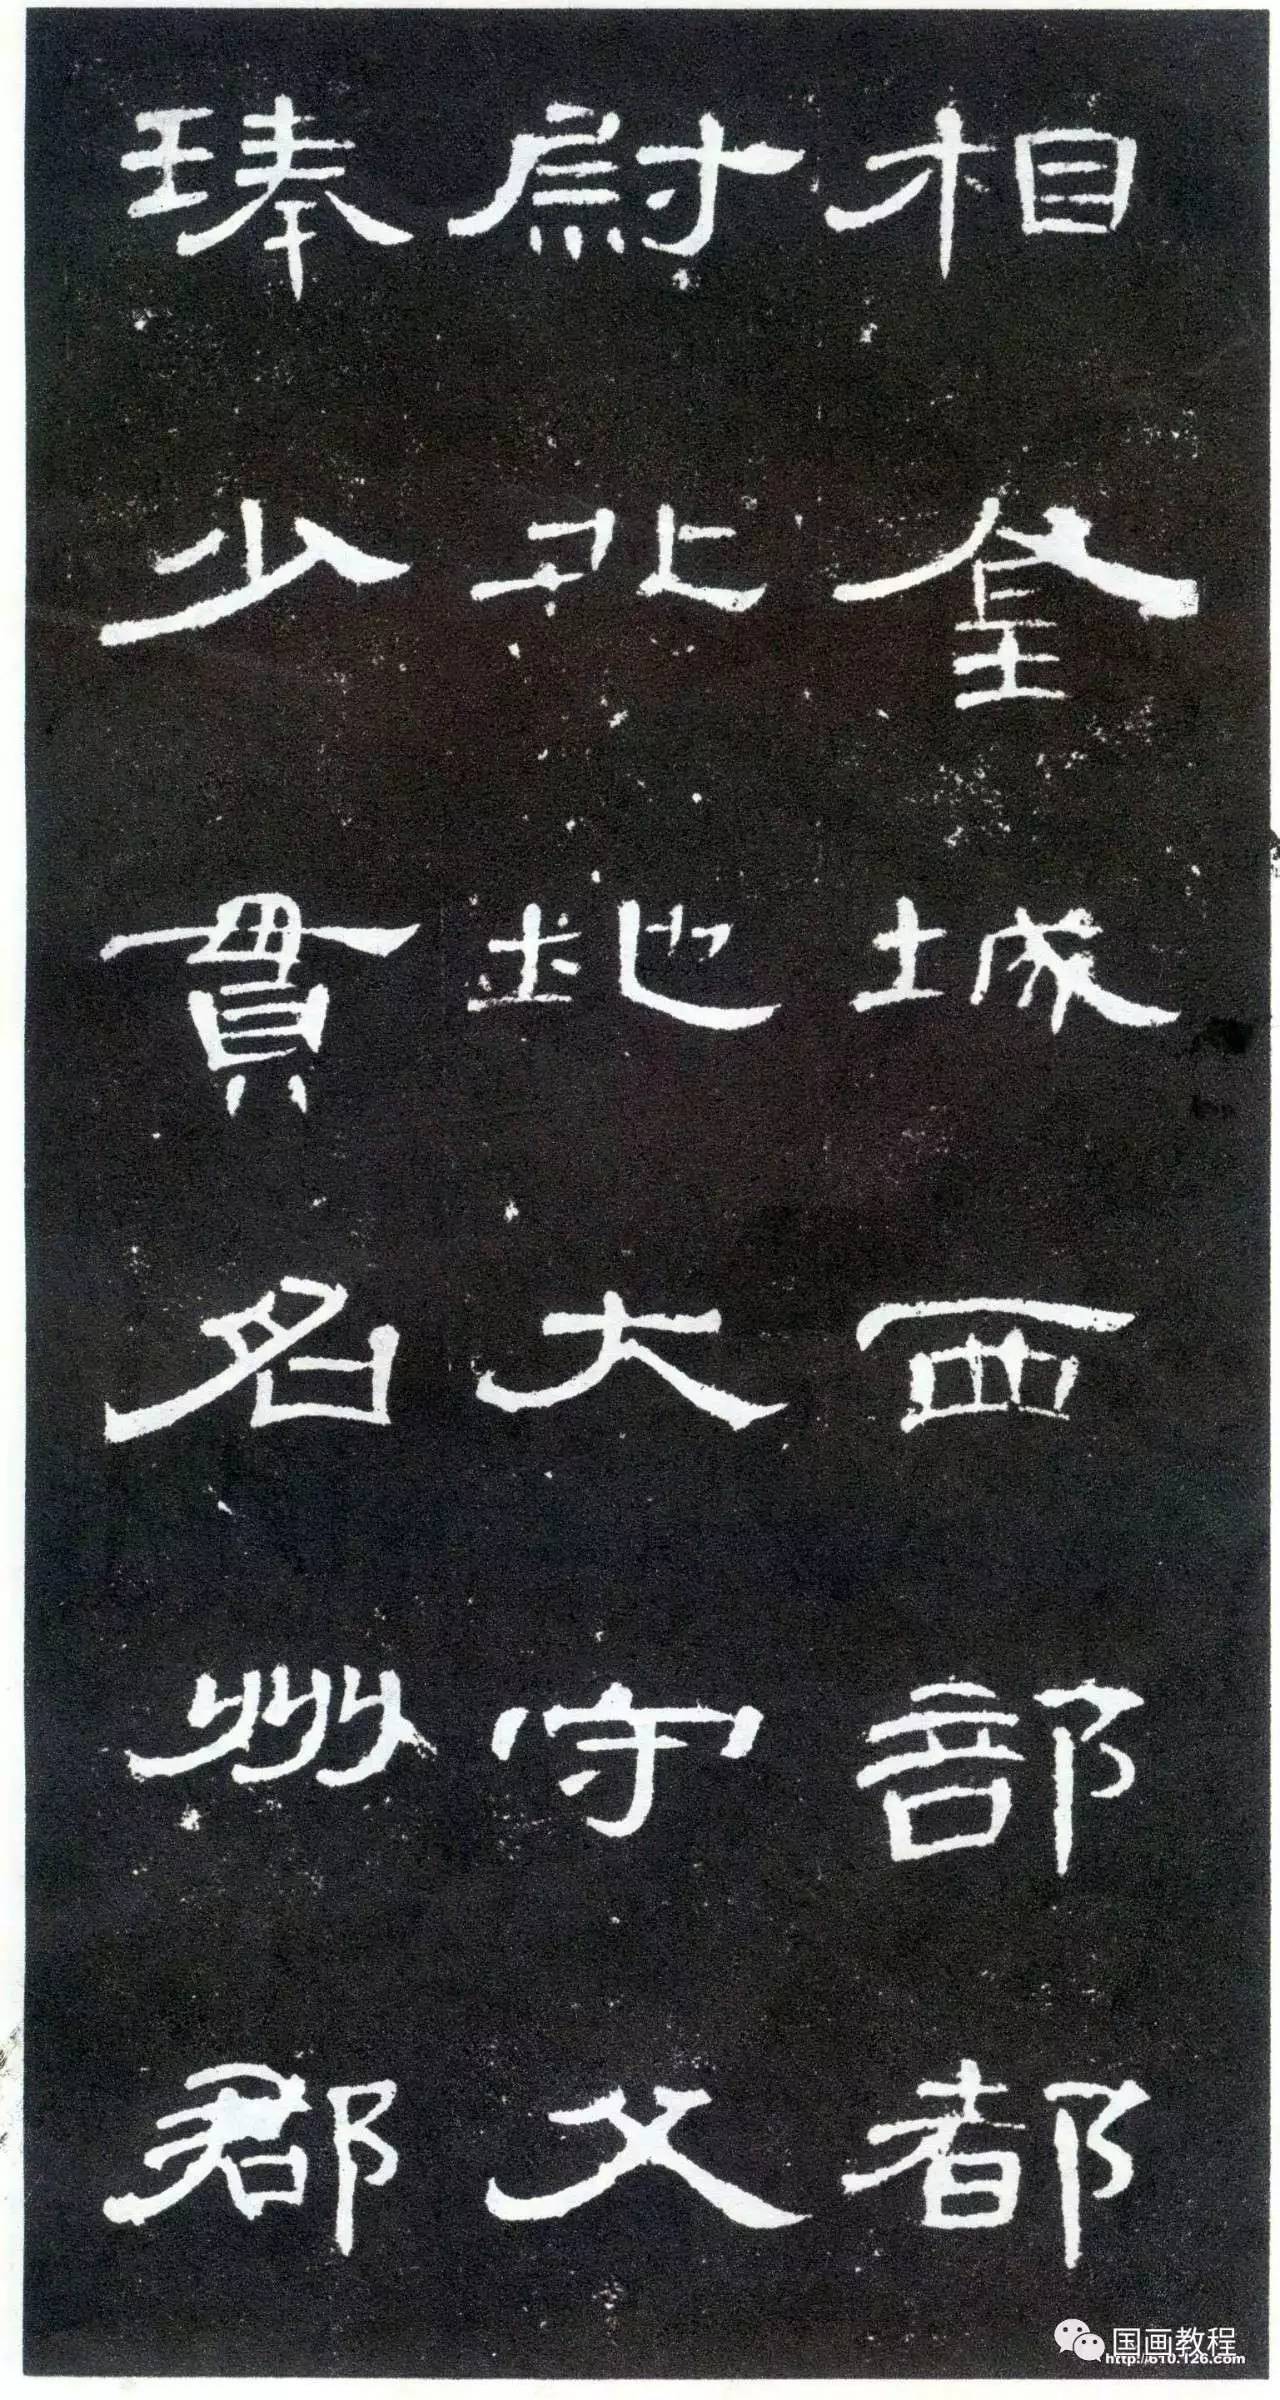 相金城西部都
尉北地大守父
琫少貫名州郡
国画教程
http://610.126.com